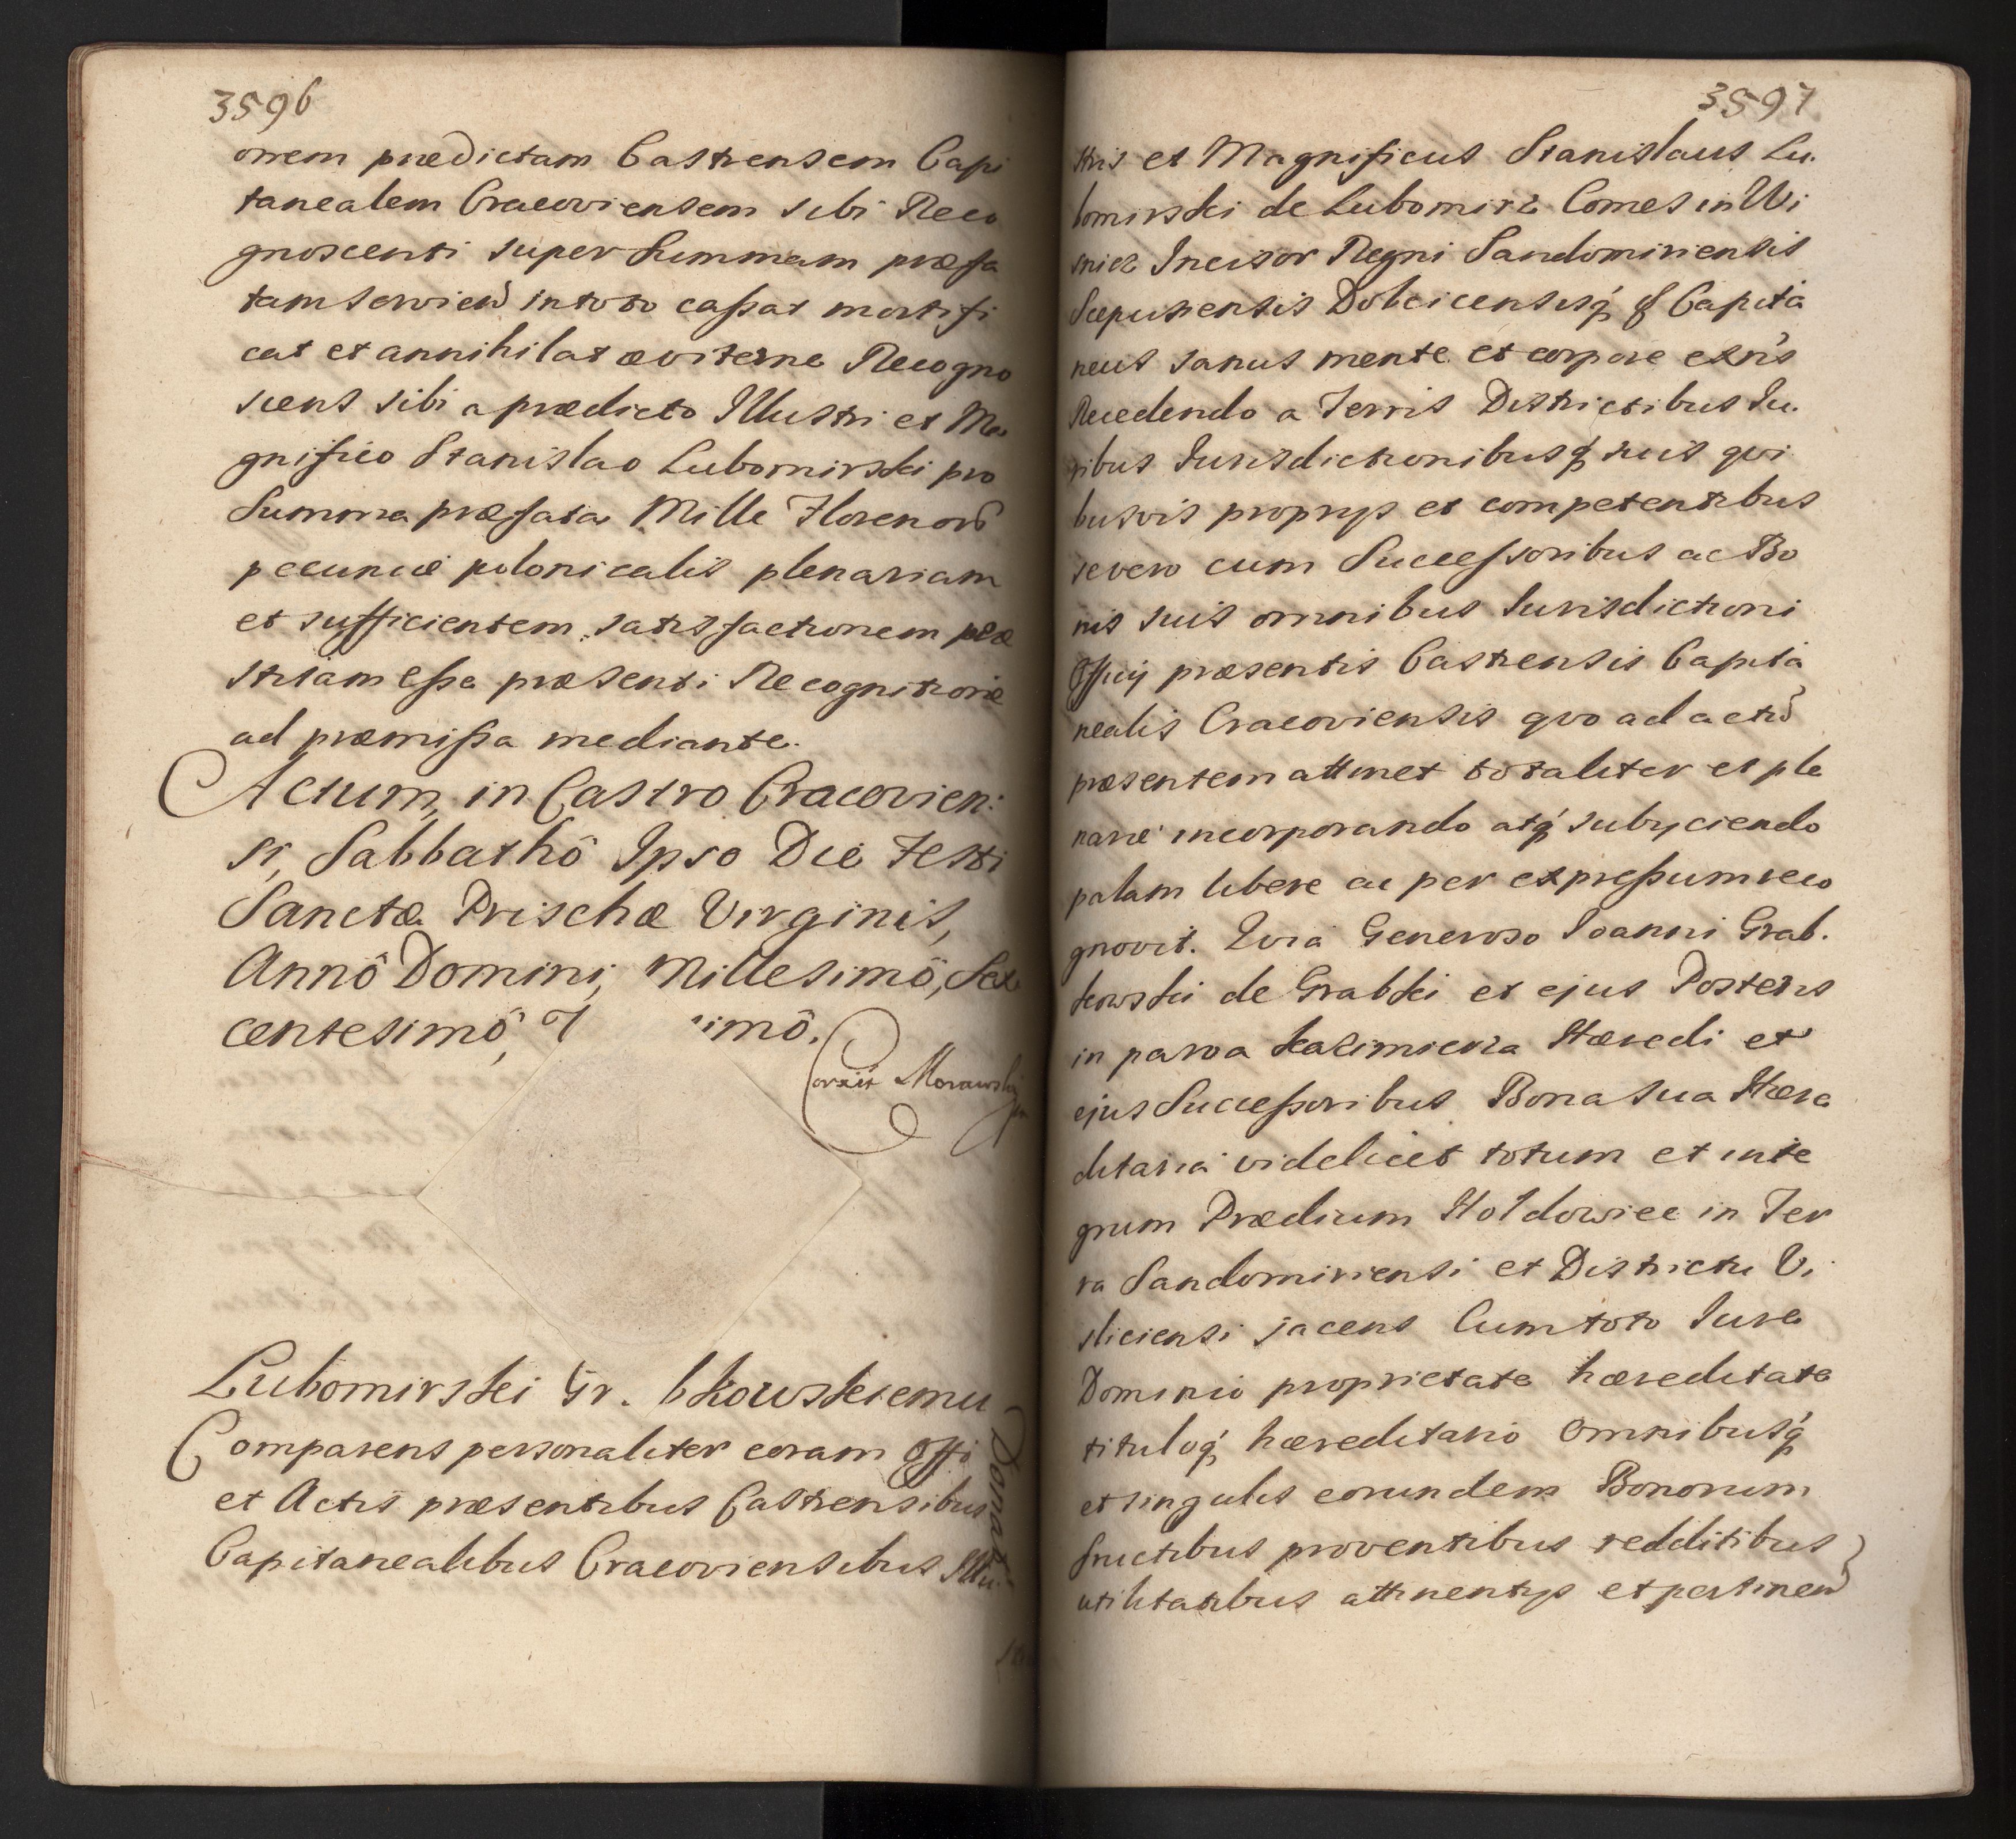 3596
onem prædictam Castrensem Capi
tanealem Cracoviensem sibi Reco
gnoscenti super Summam præfa
tam servien in toto cassat mortifi
cat et annihilat æviterne Recogno
scens sibi a prædicto Illustri et Ma
gnifico Stanislao Lubomirski pro
Summa præfata Mille Floreno
pecuniæ polonicalis plenariam
et sufficientem satisfactionem præ
stitam esse præsenti Recognitione
ad præmissa mediante.
Actum, in Castro Cracovien:
si, Sabbathô Ipso Die Festi
Sanctæ Prischæ Virginis,
Annô Domini, Millesimô, Sex
centesimô, imô.
Morawsky
Lubomirski Gr. bkowskiemu
Comparens personaliter coram Offi
et Actis præsentibus Castrensibus
Capitanealibus Cracoviensibus Illu
Donat
3597
stris et Magnificus Stanislaus Lu.
bomirski de Lubomirz Comes in Wi
snicz Incisor Regni Sandomiriensis
Scepusiensis Dobcicensisq́ & Capita
neus sanus mente et corpore exn's
Recedendo a Terris Districtibus Iu.
ribus Iurisdictionibusq́ suis qui
busvis proprys et competentibus
se vero cum Successoribus ac Bo
nis suis omnibus Iurisdictioni
Officij præsentis Castrensis Capita
nealis Cracoviensis quo ad actu
præsentem attinet totaliter et ple
narie incorporando atq́ subyciendo
palam libere ac per expressum reco
gnovit. Quia Generoso Ioanni Grab.
kowski de Grabki et ejus Posteris
in parva Kazimierza Hæredi et
ejus Successoribus Bona sua Hære
ditaria videlicet totum et inte
grum Prædium Hołdowiec in Ter
ra Sandomiriensi et Districtu Vi
sliciensi jacens Cum toto Iure
Dominio proprietate hæreditate
tituloq́ hæreditario Omnibusq́
et singulis eorundem Bonorum
fructibus proventibus redditibus
utilitatibus attinentys et pertinen